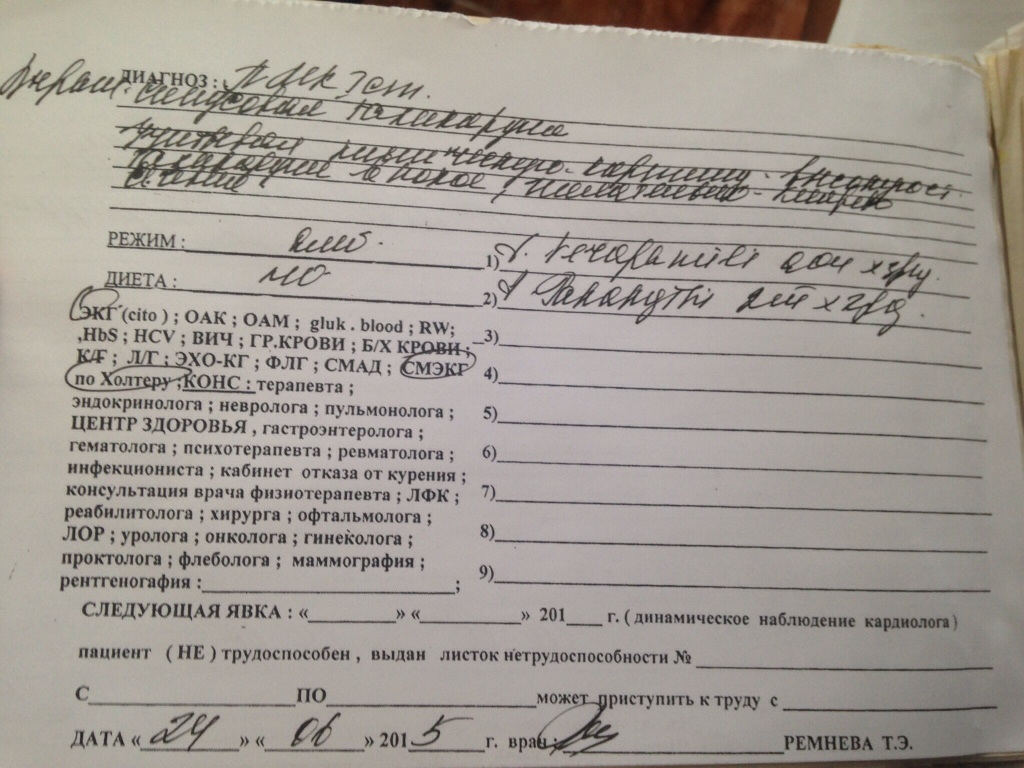 ДИАГНОЗ :
синусовая тахикардия
учитывая
в покое
РЕЖИМ : амб.
ДИЕТА : №10
1)
2)
ЭКГ (cito) ; ОАК ; ОАМ ; gluk . blood ; RW;
,HbS ; HCV ; ВИЧ ; ГР.КРОВИ ; Б/Х КРОВИ ;
К/Г ; Л/Г ; ЭХО-КГ ; ФЛГ ; СМАД ; СМЭКГ
по Холтеру ;КОНС : терапевта ;
эндокринолога ; невролога ; пульмонолога ;
ЦЕНТР ЗДОРОВЬЯ , гастроэнтеролога ;
гематолога ; психотерапевта ; ревматолога ;
инфекциониста ; кабинет отказа от курения ;
консультация врача физиотерапевта ; ЛФК ;
реабилитолога ; хирурга ; офтальмолога ;
ЛОР ; уролога ; онколога ; гинеколога ;
проктолога ; флеболога ; маммография ;
рентгеногафия : ;
3)
4)
5)
6)
7)
8)
9)
СЛЕДУЮЩАЯ ЯВКА : « » « » 201 г. ( динамическое наблюдение кардиолога)
пациент ( НЕ ) трудоспособен , выдан листок нетрудоспособности №
С ПО может приступить к труду с
ДАТА « 24 » « 06 » 2015 г. врач : РЕМНЕВА Т.Э.